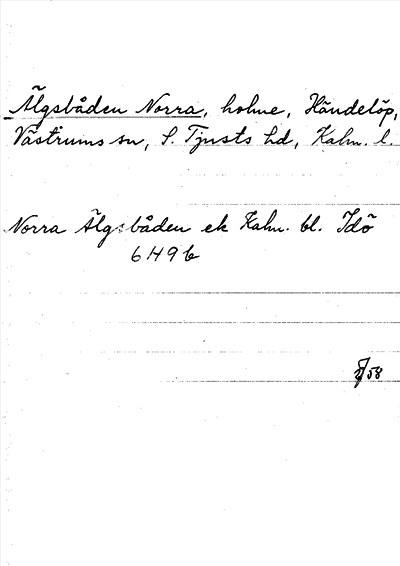 Älgsbåden Norra, holme, Händelöp,
Västrums sn, S. Tjusts hd, Kalm. l.
Norra Älgsbåden ek Kalm. bl. Idö
6H9b
58